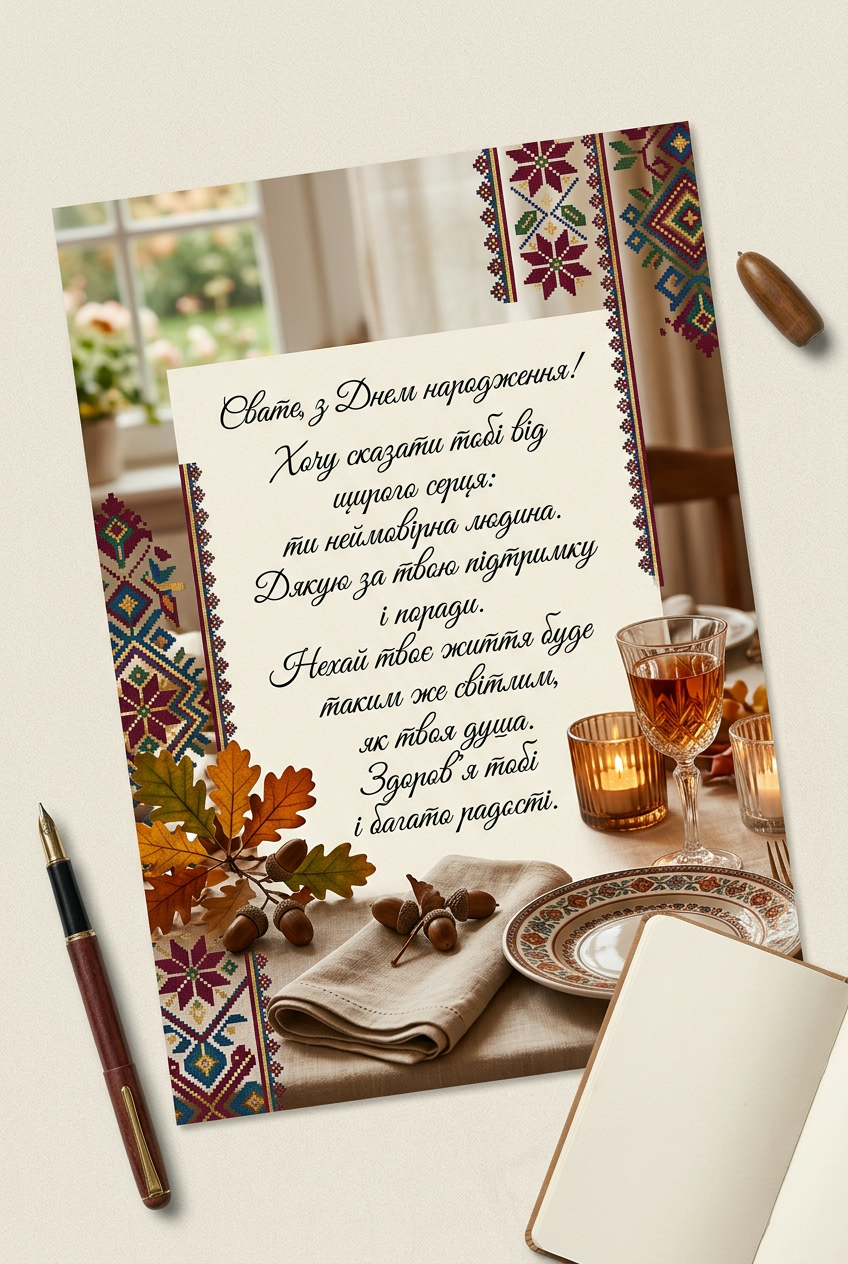 Свате, з Днем народження!
Хочу сказати тобі від
щирого серця:
ти неймовірна людина.
Дякую за твою підтримку
і поради.
Нехай твоє життя буде
таким же світлим,
як твоя душа.
Здоров'я тобі
і багато радості.